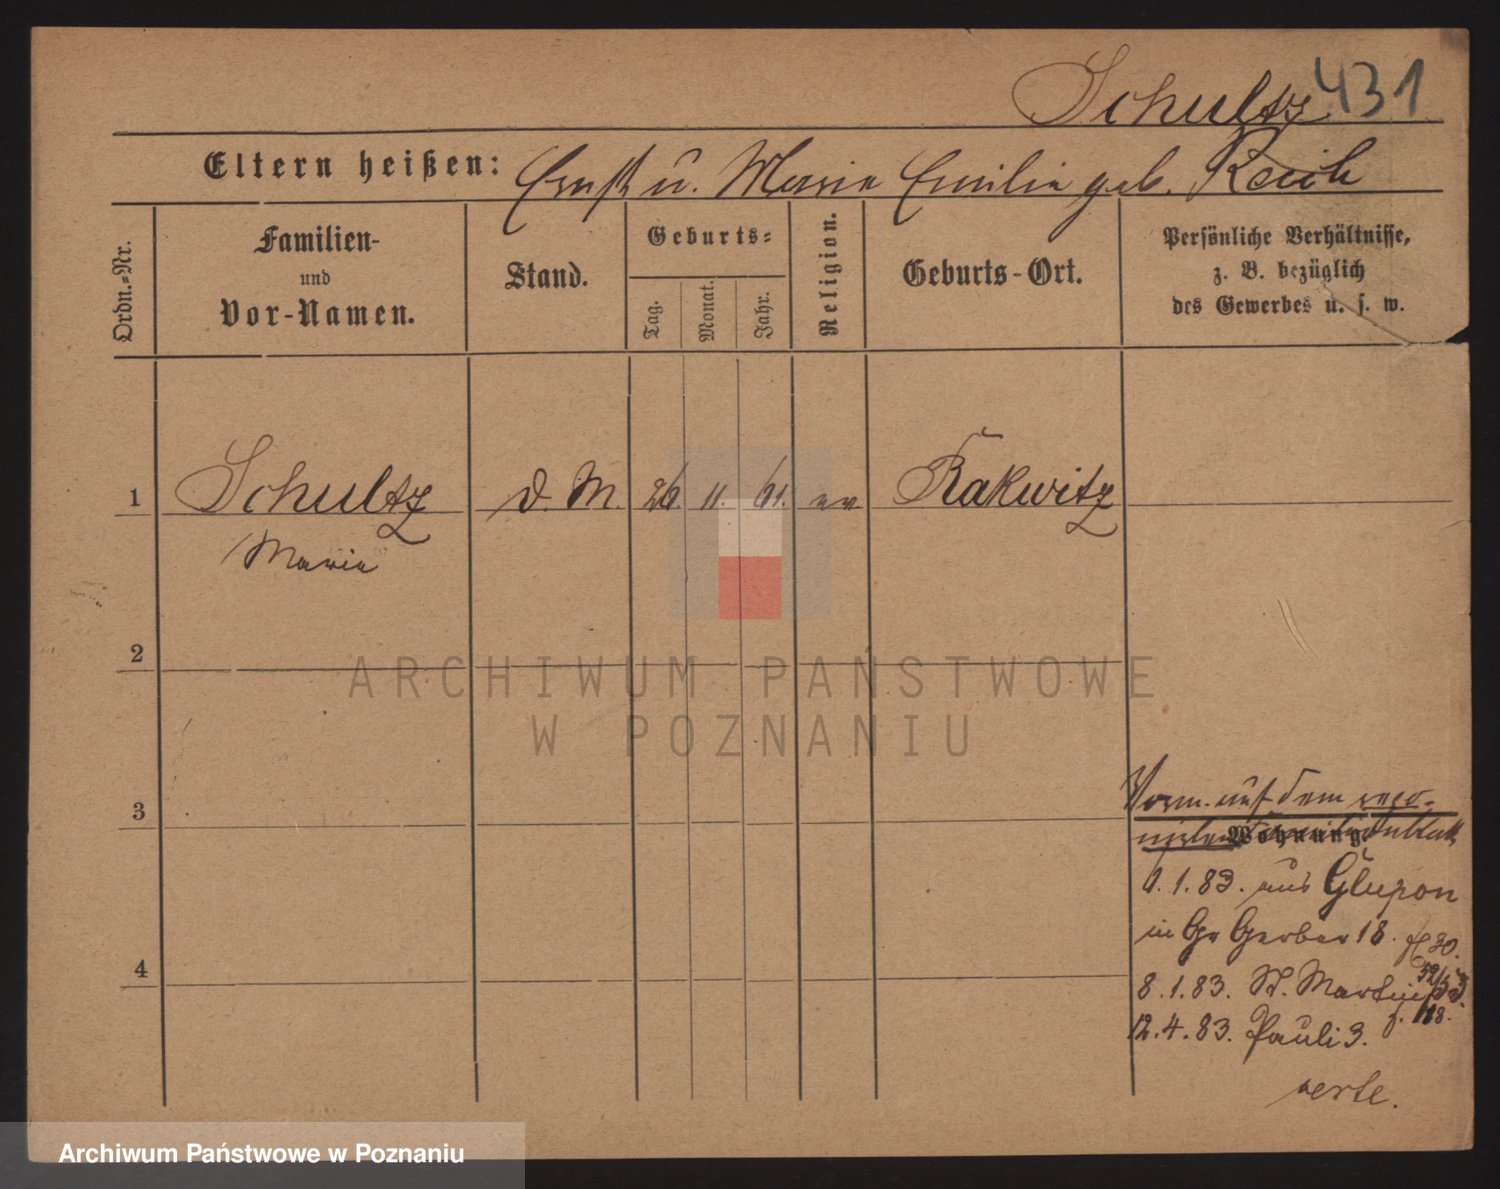 Schultz 431
Eltern heißen: Ernst u. Marie Emilie geb. Reich
Ordn.-Nr.
Familien-
und
Vor-Namen.
Stand.
Geburts-
Tag.
Monat.
Jahr.
Religion.
Geburts-Ort.
Persönliche Verhältnisse,
z. B. bezüglich
des Gewerbes u. s. w.
1 Schultz d. M. 26. 11. 61. ev. Rakwitz
Marie
2
ARCHIWUM PAŃSTWOWE
W POZNANIU
3
Verm. auf dem
Wohnung.
1.1.83. aus Glupon
in Gr Gerber 18. 30.
4
8.1.83. St. Martin
12.4.83. Pauli 3.
verte.
Archiwum Państwowe w Poznaniu